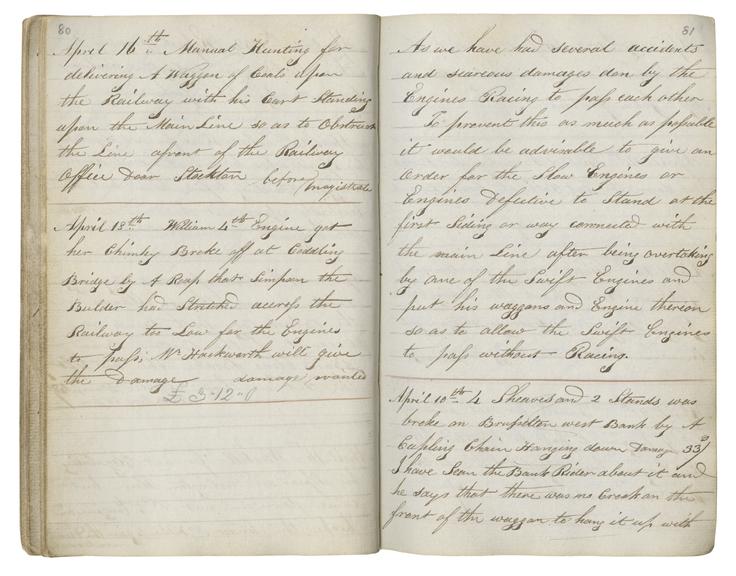 80
April 16th Manual Hunting for
delivering A Waggon of Coals upon
the Railway with his Cart Standing
upon the Main Line so as to Obstruct
the Line afront of the Railway
Office Door Stockton before magistrate
April 18th William 4th Engine got
her Chimley Broke off at Coddling
Bridge by A Roap that Simpson the
Bulder had Stretched accress the
Railway too Low for the Engines
to pass, Mr Hackworth will give
the Damage damage wanted
£ 3-12-0
81
As we have had several accidents
and searous damages don by the
Engines Racing to pass each other
To prevent this as much as possable
it would be advisable to give an
order for the Slow Engines or
Engines Defective to Stand at the
first Siding or way connected with
the main Line after being overtaking
by one of the Swift Engines and
put his waggons and Engine thereon
so as to allow the Swift Engines
to pass without Racing.
April 10th 4 Sheaves and 2 Stands was
broke on Brusselton west Bank by A
Cupling Chain Hanging down Damage 33/
I have Sean the Bank Rider about it and
he says that there was no Crook on the
front of the waggon to hang it up with